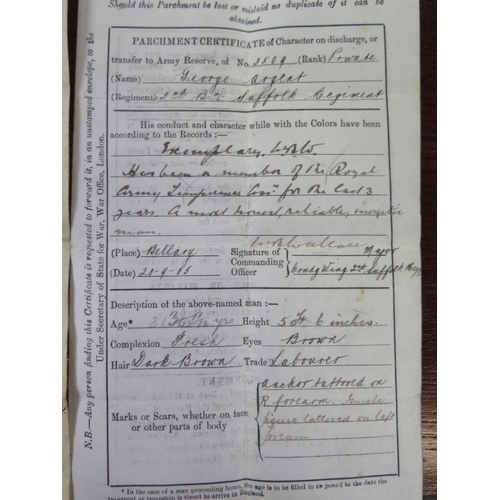 Should this Parchment be lost or mislaid no duplicate of it can be
obtained.
PARCHMENT CERTIFICATE of Character on discharge, or
transfer to Army Reserve, of No. 3509 (Rank) Private
(Name) George Argent
(Regiment) 2nd Bn Suffolk Regiment
His conduct and character while with the Colors have been
according to the Records:—
Exemplary.
Has been a member of the Royal
Army Temperance Assn. for the last 3
years. A most honest, reliable, energetic
man.
(Place) Bellary
(Date) 20-9-05
Signature of
Commanding
Officer
Wallace Major
Comdg Wing 2nd Suffolk Regt
Description of the above-named man:—
Age* yrs Height 5 Ft 6 inches.
Complexion Fresh Eyes Brown
Hair Dark Brown Trade Labourer
Marks or Scars, whether on face
or other parts of body
anchor tattooed on
R forearm. Female
figure tattooed on left
forearm
* In the case of a man proceeding home, the age is to be filled in as on the date the
transport or troopship is timed to arrive in England.
N.B.—Any person finding this Certificate is requested to forward it, in an unstamped envelope, to the
Under Secretary of State for War, War Office, London.